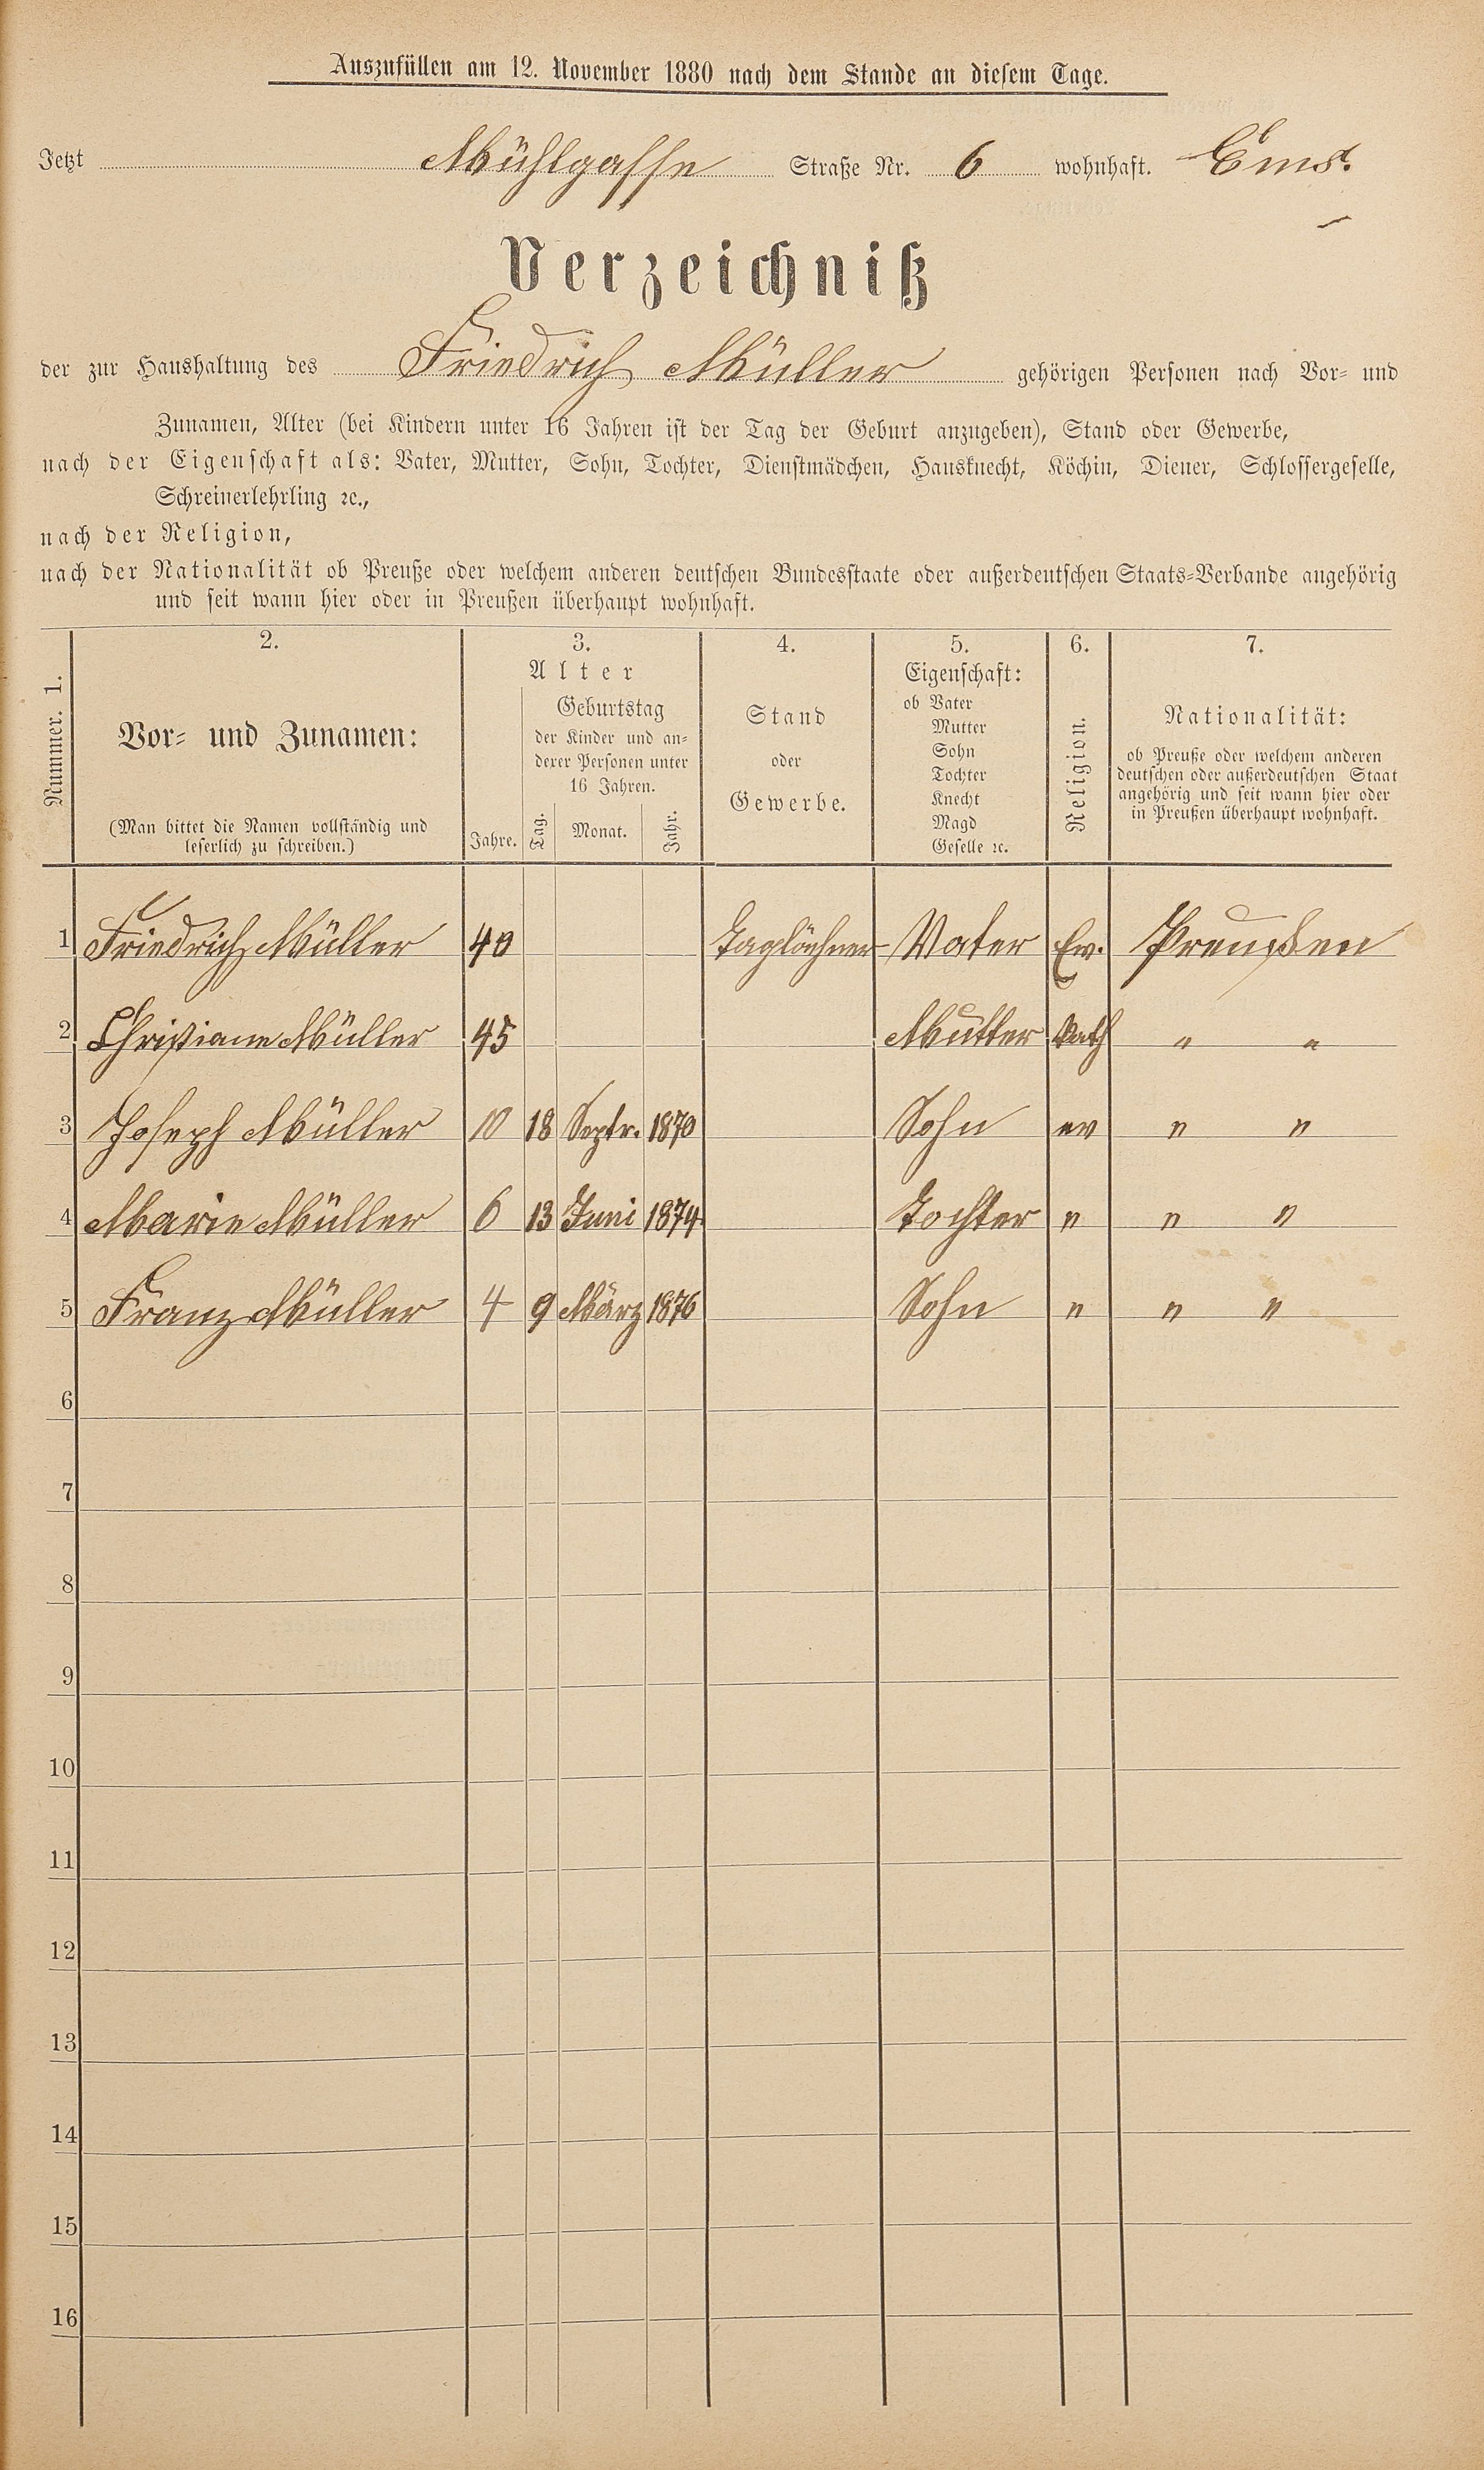 Auszufüllen am 12. November 1880 nach dem Stande an diesem Tage.
Jetzt Mühlgasse Straße Nr. 6 wohnhaft. Ems.
Verzeichniß
der zur Haushaltung des Friedrich Müller gehörigen Personen nach Vor- und
Zunamen, Alter (bei Kindern unter 16 Jahren ist der Tag der Geburt anzugeben), Stand oder Gewerbe,
nach der Eigenschaft als: Vater, Mutter, Sohn, Tochter, Dienstmädchen, Hausknecht, Köchin, Diener, Schlossergeselle,
Schreinerlehrling ꝛc.,
nach der Religion,
nach der Nationalität ob Preuße oder welchem anderen deutschen Bundesstaate oder außerdeutschen Staats-Verbande angehörig
und seit wann hier oder in Preußen überhaupt wohnhaft.
Nummer. 1.
2.
Vor- und Zunamen:
(Man bittet die Namen vollständig und
leserlich zu schreiben.)
3.
Alter
Jahre.
Geburtstag
der Kinder und an-
derer Personen unter
16 Jahren.
Tag. Monat. Jahr.
4.
Stand
oder
Gewerbe.
5.
Eigenschaft:
ob Vater
Mutter
Sohn
Tochter
Knecht
Magd
Geselle ꝛc.
6.
Religion.
7.
Nationalität:
ob Preuße oder welchem anderen
deutschen oder außerdeutschen Staat
angehörig und seit wann hier oder
in Preußen überhaupt wohnhaft.
1 Friedrich Müller 40 Taglöhner Vater Ev. Preußen
2 Christiane Müller 45 Mutter Kath " "
3 Joseph Müller 10 18 Septr. 1870 Sohn ev " "
4 Marie Müller 6 13 Juni 1874 Tochter " " "
5 Franz Müller 4 9 März 1876 Sohn " " "
6
7
8
9
10
11
12
13
14
15
16